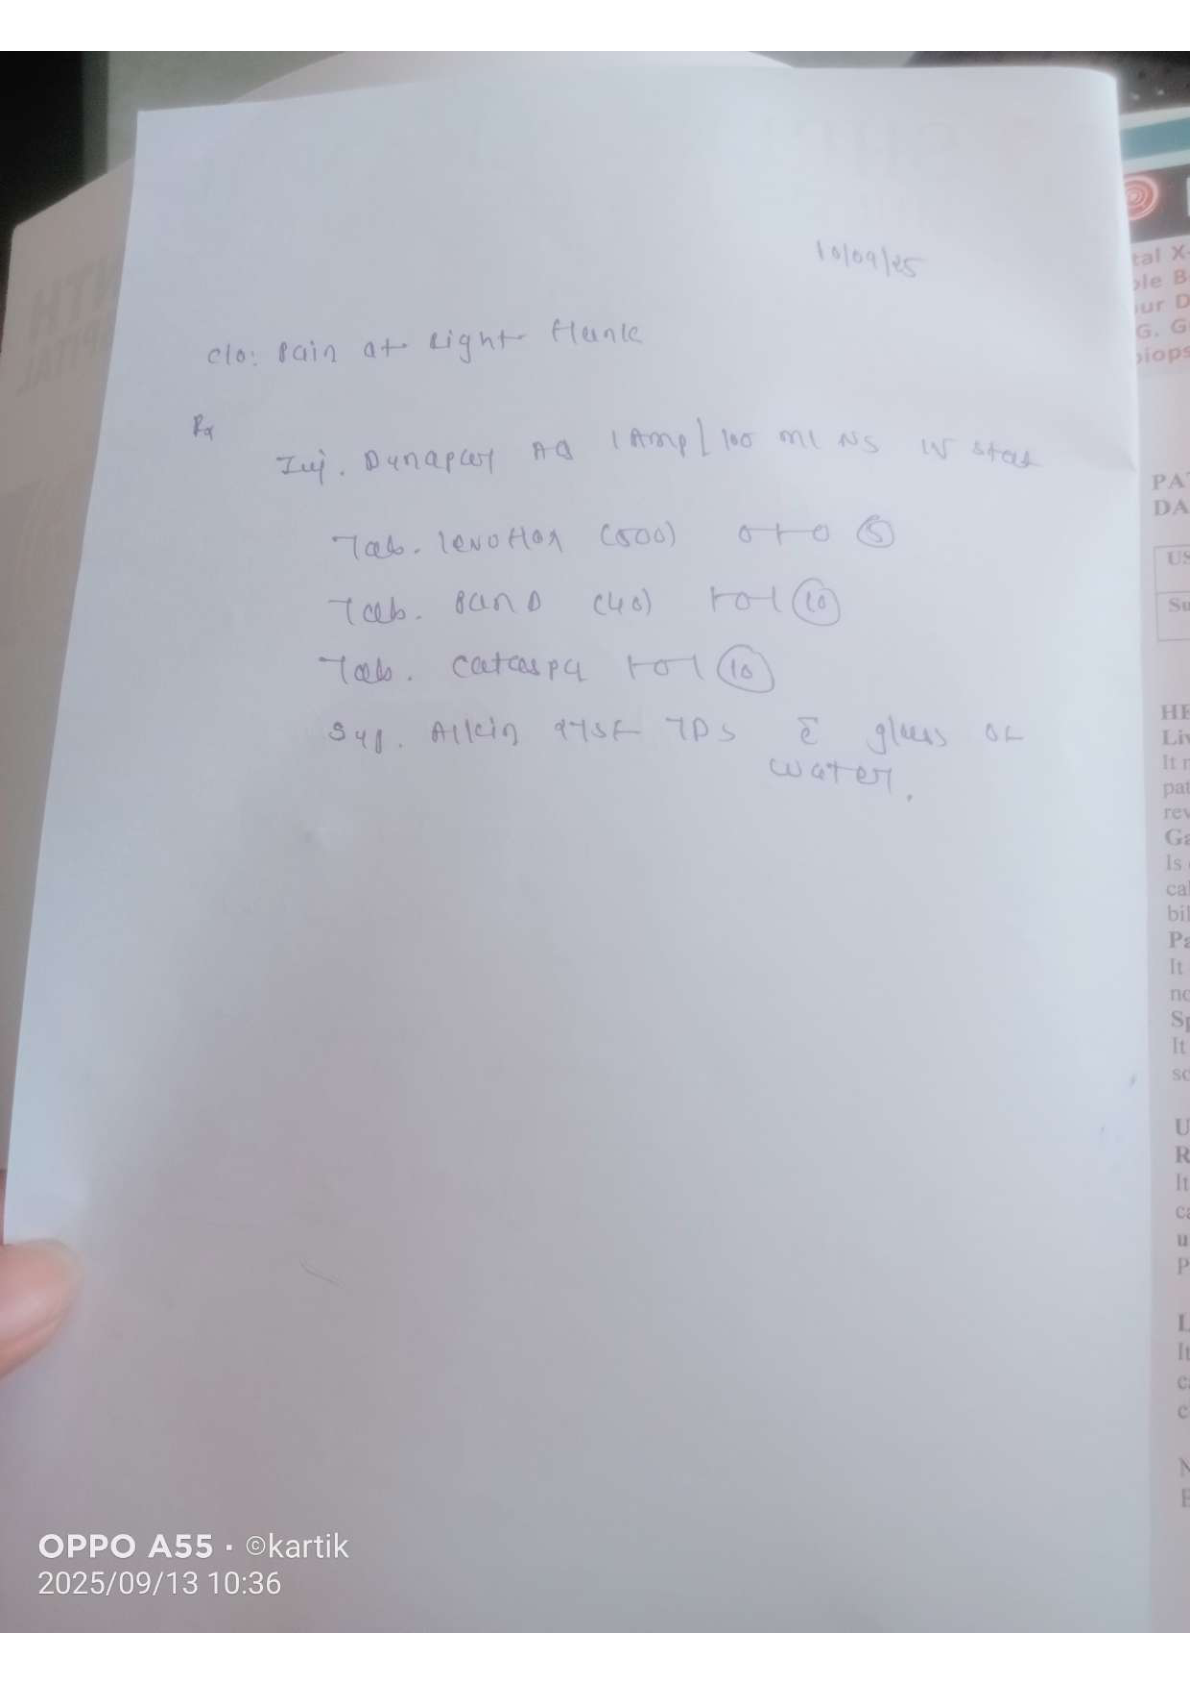 10/09/25
c/o: Pain at Right Flank
Rx
Inj. Dynapar AQ 1 Amp/100 ml NS IV stat
Tab. levoflox (500) 0+0 (5)
Tab. Pan D (40) 1-0-1 (10)
Tab. Cataspa 1-0-1 (10)
Syp. Alkin 2TSF TDS c̄ glass of
water.
tal X-
ole B
our D
G. G
biops
PA
DA
US
Su
HE
Liv
It r
pat
rev
Ga
Is
cal
bil
Pa
It
no
Sp
It
sc
U
R
It
ca
u
P
L
It
c
N
E
OPPO A55 · ©kartik
2025/09/13 10:36